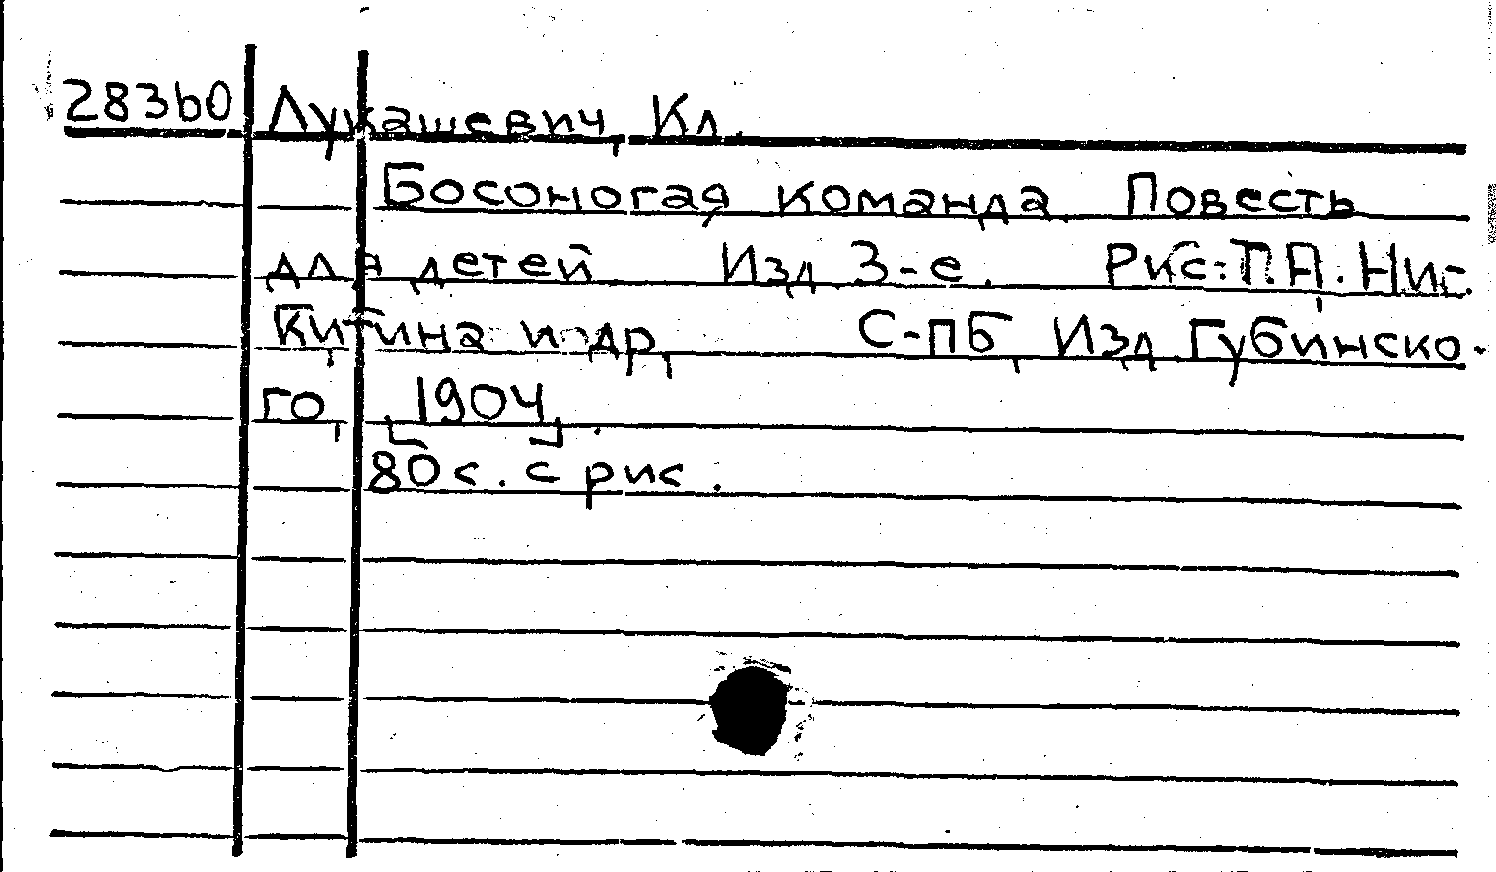 28360 Лукашевич, Кл.
Босоногая команда. Повесть
для детей Изд 3-е. Рис: П.А. Ни-
китина и др, С-ПБ, Изд Губинско-
го, [1904].
80 с. с рис.